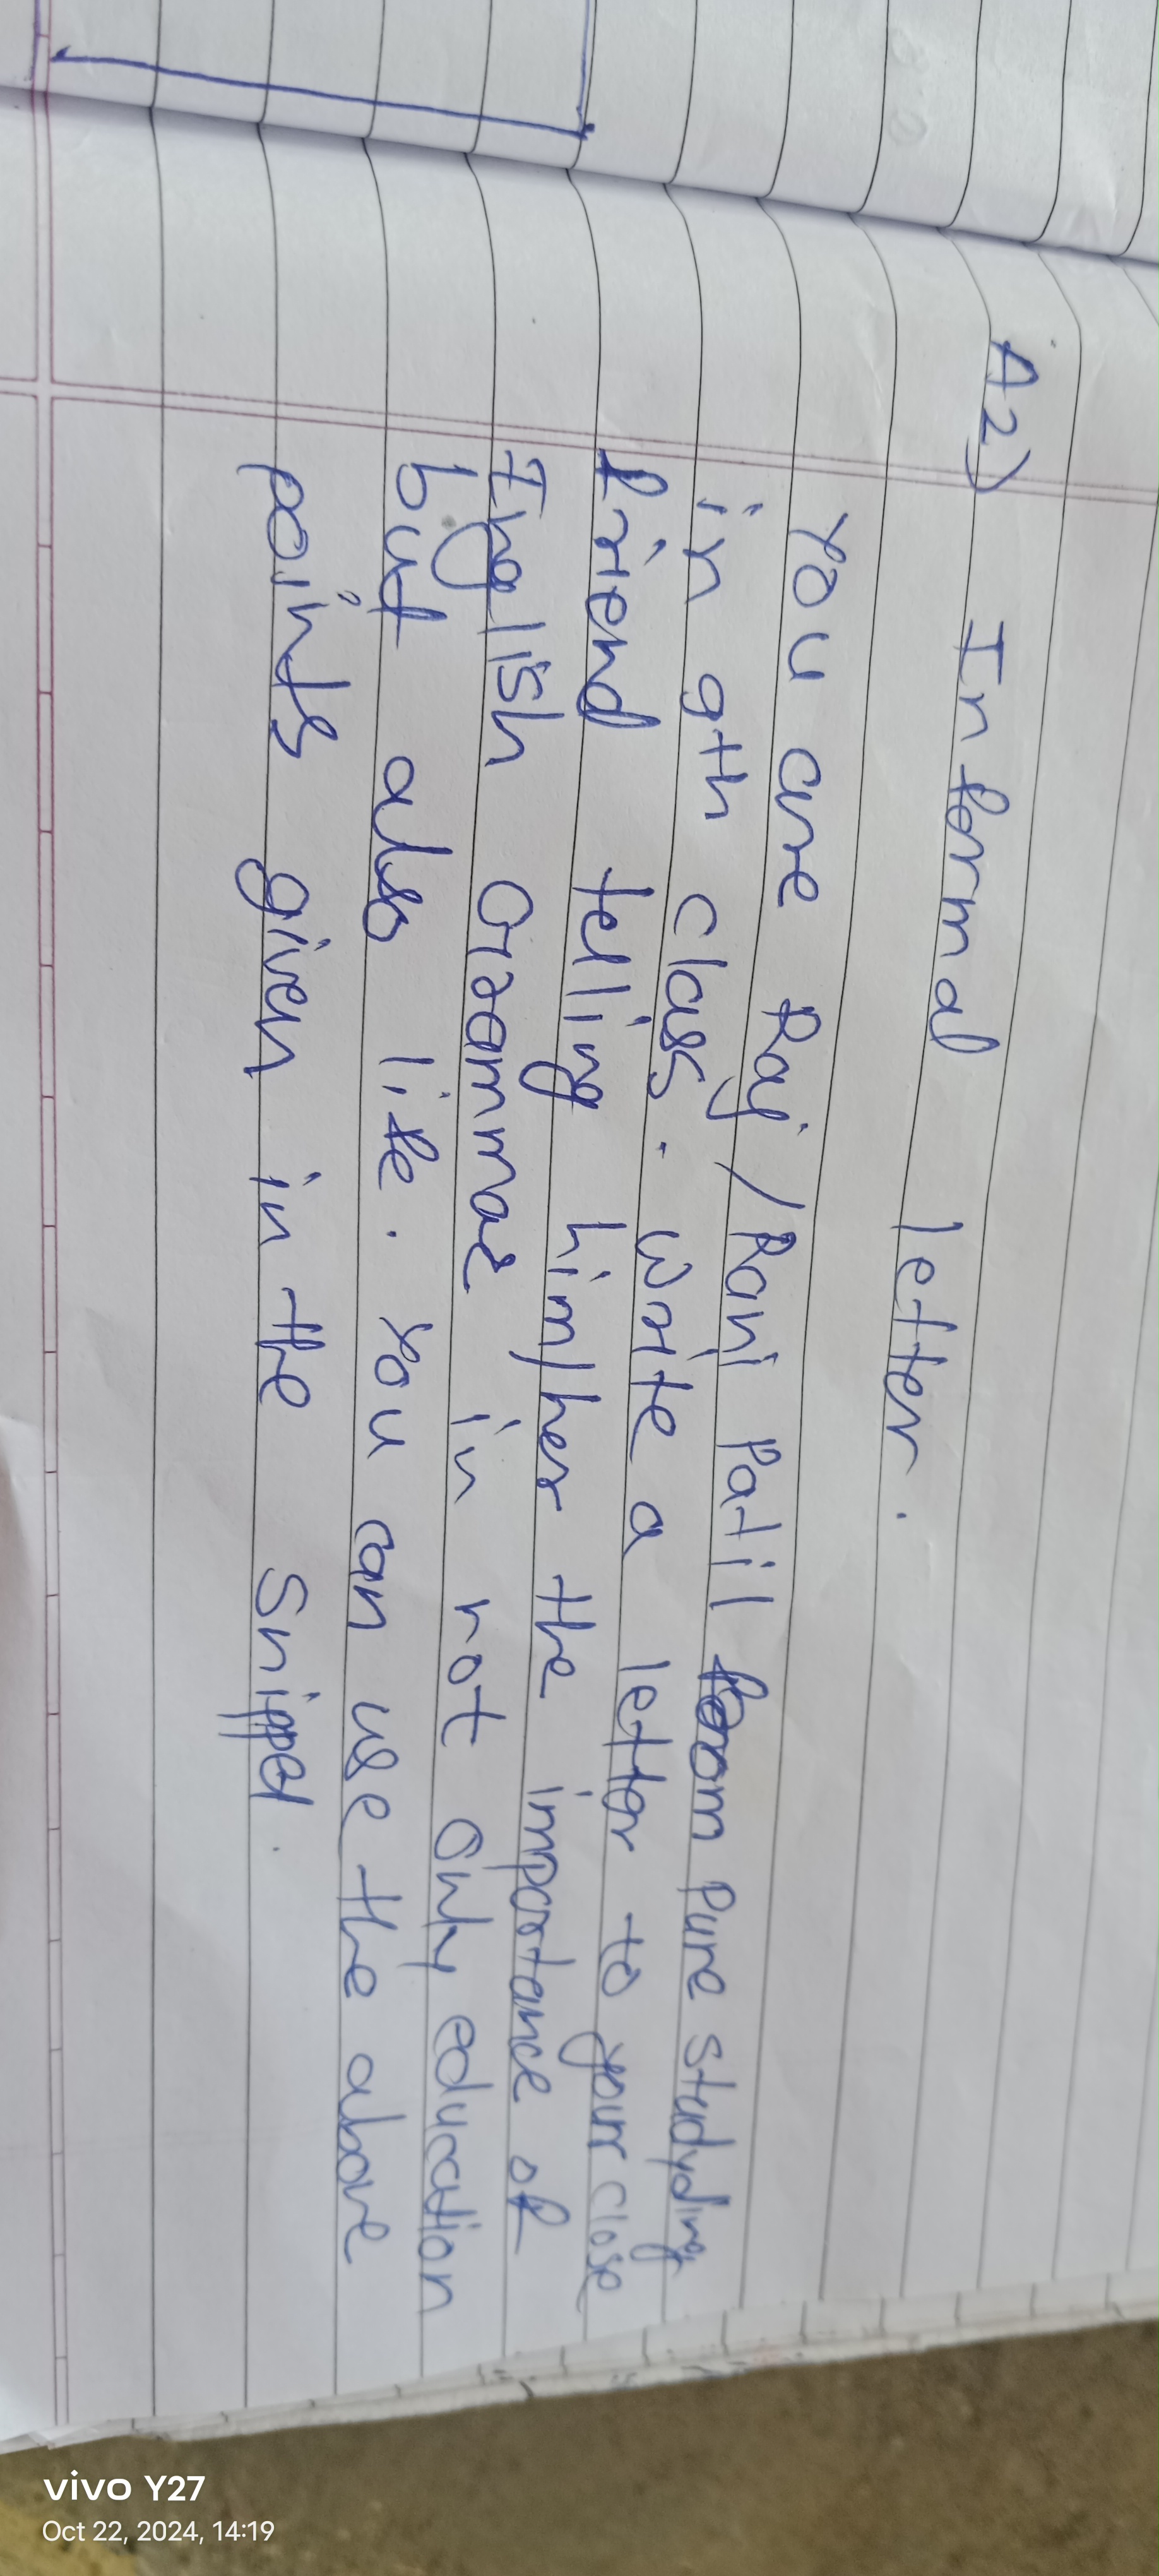 A2) Informal letter.
You are Raj/Rani Patil from Pune studyding
in 9th class. write a letter to your close
friend telling him/her the importance of
Inglish Grammar in not only education
but also life. You can use the above
points given in the Snippet.
vivo Y27
Oct 22, 2024, 14:19